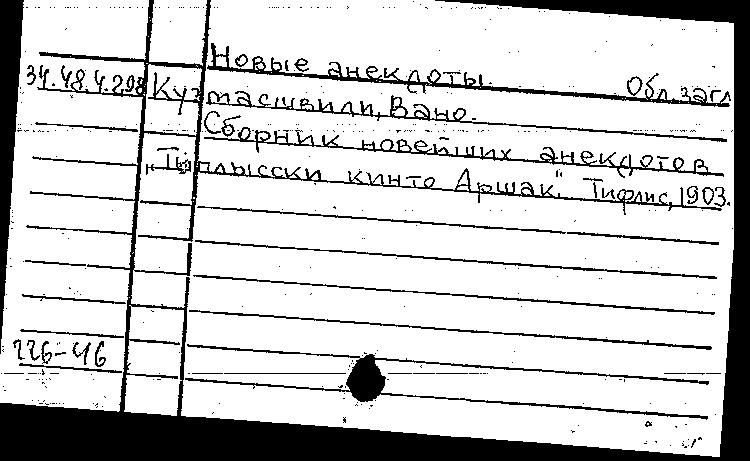 Новые анекдоты. Обл. загл
34.48.4.298 Кузмасшвили, Вано.
Сборник новейших анекдотов
"Тыплысски кинто Аршак". Тифлис, 1903.
226-46